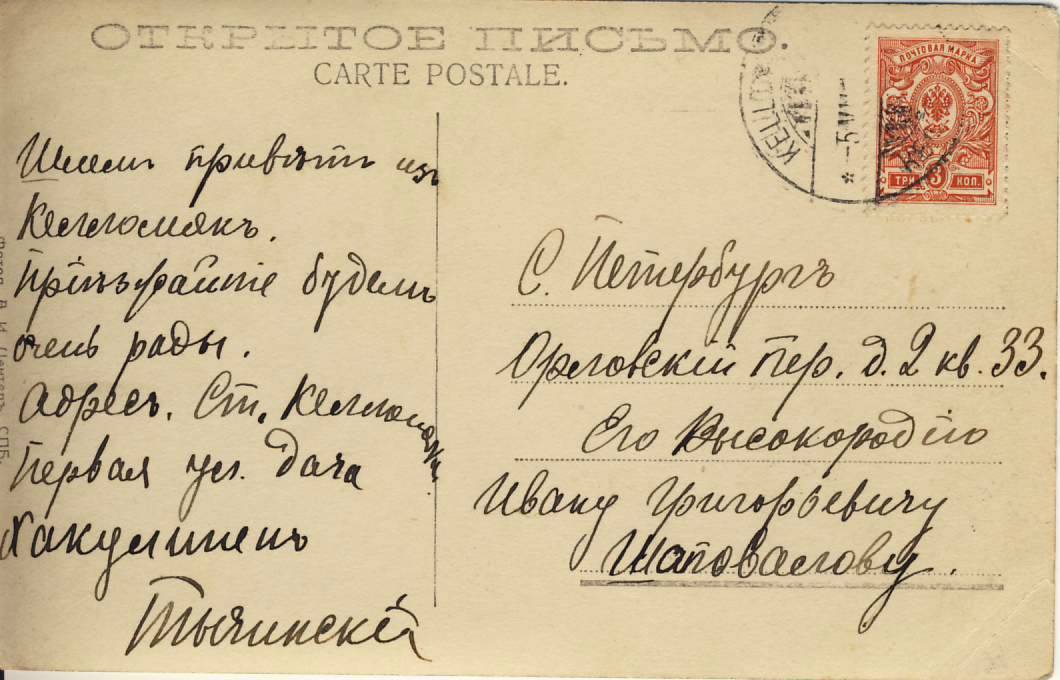 ОТКРЫТОЕ ПИСЬМО.
CARTE POSTALE.
ПОЧТОВАЯ МАРКА
ТРИ 3 КОП.
KELLO
5 VII
Шлемъ привѣтъ изъ
Келломякъ.
Пріѣзжайте будемъ
очень рады.
Адресъ. Ст. Келломяки
Первая ул. дача
Хакулиненъ
Тычинскій
С. Петербургъ
Орловскій пер. д. 2 кв. 33.
Его Высокородію
Ивану Григорьевичу
Шаповалову.